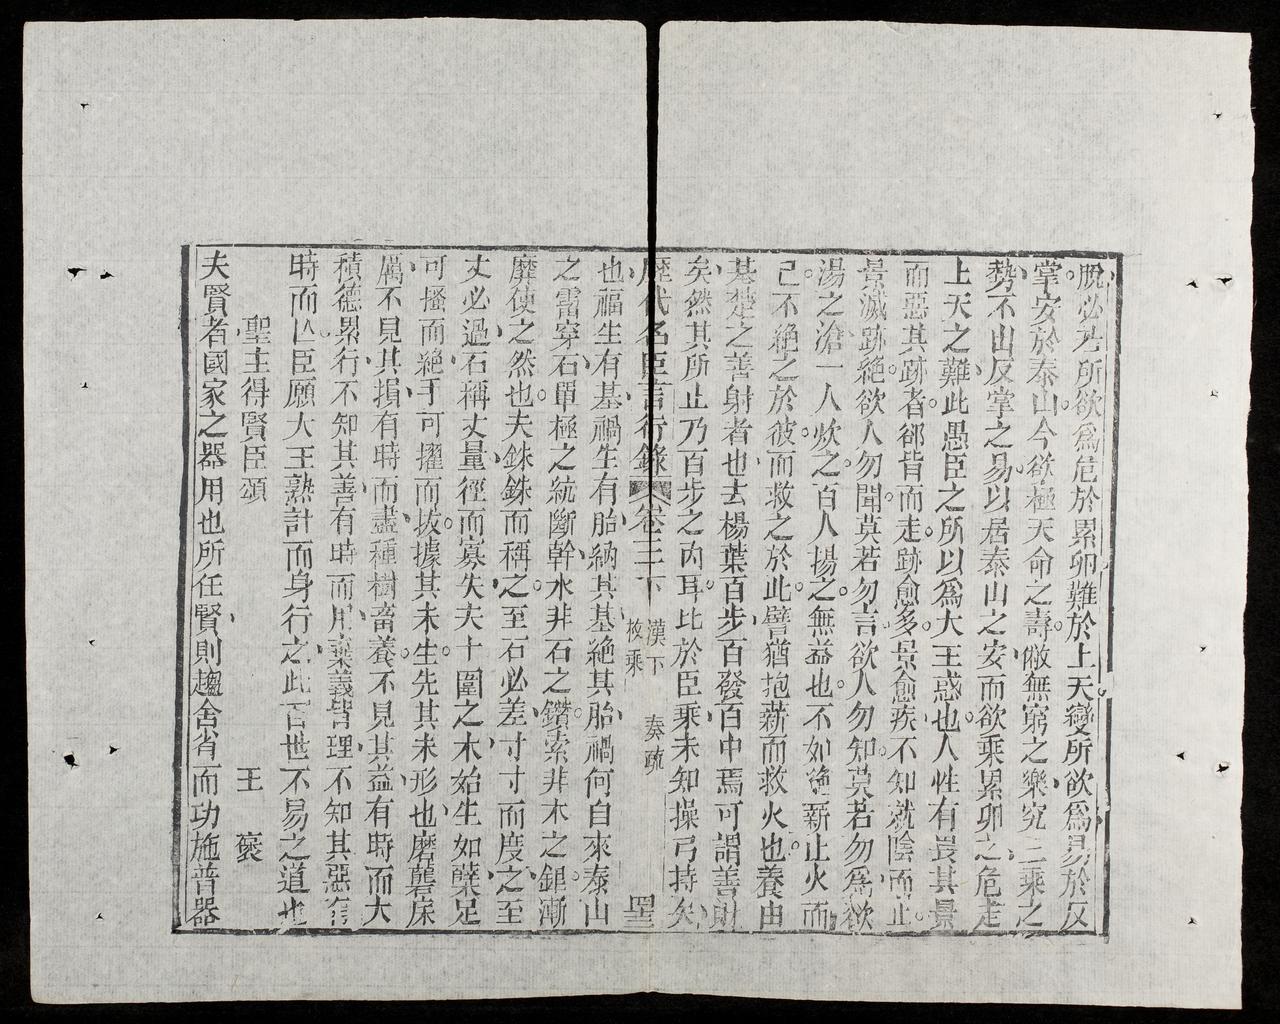 脫必若所欲爲危於累卵難於上天變所欲爲易於反
掌安於泰山今欲極天命之壽敝無窮之樂究二乘之
勢不出反掌之易以居泰山之安而欲乘累卵之危走
上天之難此愚臣之所以爲大王惑也人性有畏其景
而惡其跡者郤背而走跡愈多景愈疾不知就陰而止
景滅跡絶欲人勿聞莫若勿言欲人勿知莫若勿爲欲
湯之滄一人炊之百人揚之無益也不如絶薪止火而
已不絶之於彼而救之於此譬猶抱薪而救火也養由
基楚之善射者也去楊葉百步百發百中焉可謂善射
矣然其所止乃百步之內耳比於臣乘未知操弓持矢
歷代名臣言行錄 卷三下 漢下 枚乘 奏疏
也福生有基禍生有胎納其基絶其胎禍何自來泰山
之霤穿石單極之統斷幹水非石之鑽索非木之鋸漸
靡使之然也夫銖銖而稱之至石必差寸寸而度之至
丈必過石稱丈量徑而寡失夫十圍之木始生如櫱足
可搔而絶手可擢而拔據其未生先其未形也磨礱底
厲不見其損有時而盡種樹畜養不見其益有時而大
積德累行不知其善有時而用棄義背理不知其惡有
時而亾臣願大王熟計而身行之此百世不易之道也
聖主得賢臣頌 王褒
夫賢者國家之器用也所任賢則趨舍省而功施普器